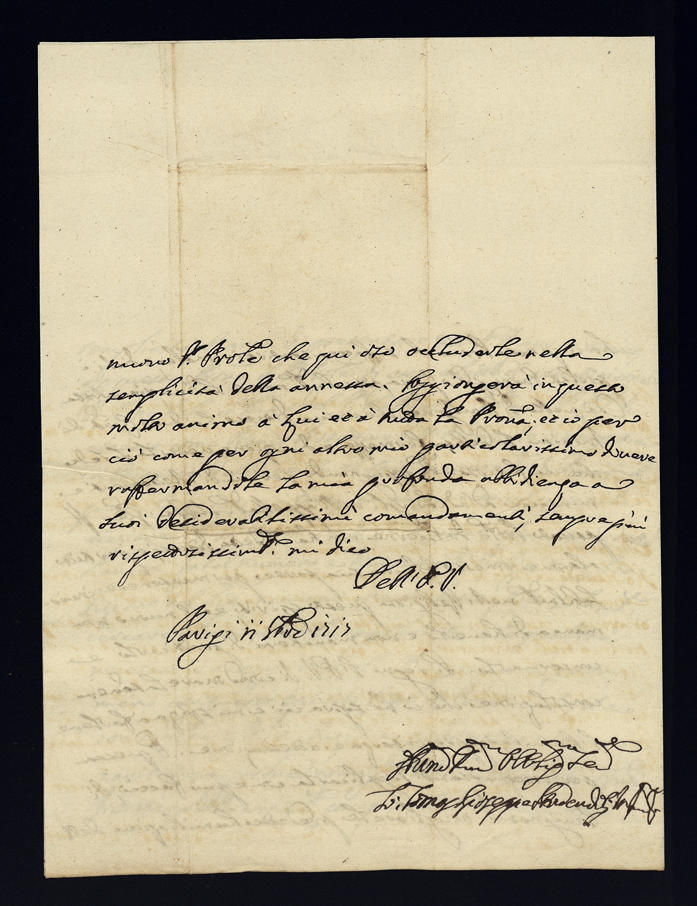 nuovo P. Prõle che qui oso occluderle nella
semplicità della annessa. Soggiongerà in questa
molto animo à Lui et à tutta la Provã, et io per
ciò come per ogni altro mio particolarissimo dovere
raffermandole la mia profonda obbidienza a
suoi desiderabilissimi comandamenti, sempre più
rispettosissim.te mi dico
Della P. V.
Parigi 11 1717
Tomaso Gioseppe